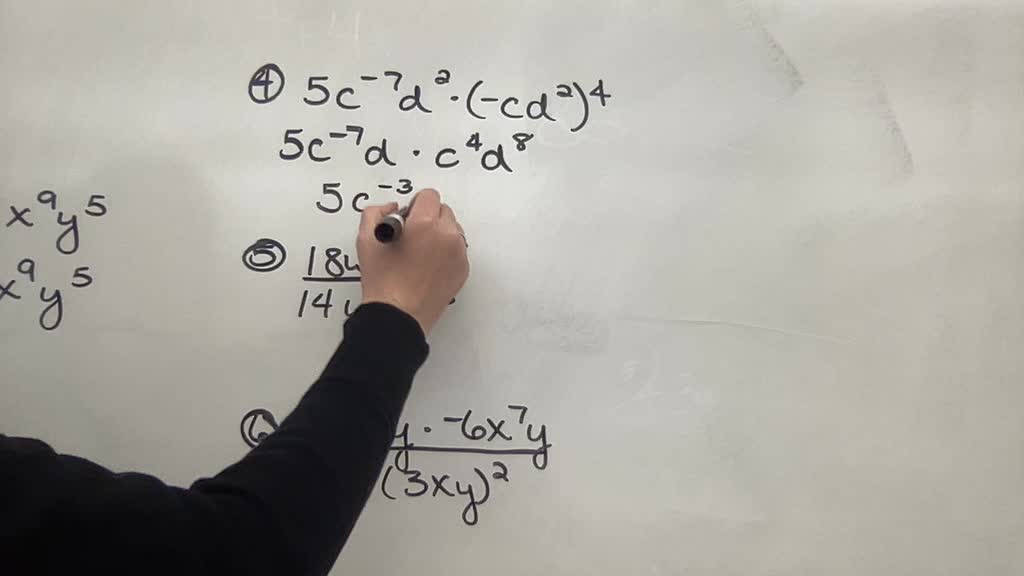 x⁹y⁵
x⁹y⁵
④ 5c⁻⁷d²·(-cd²)⁴
5c⁻⁷d · c⁴d⁸
5c⁻³
⑤ 18
14
⑥ y · -6x⁷y
(3xy)²